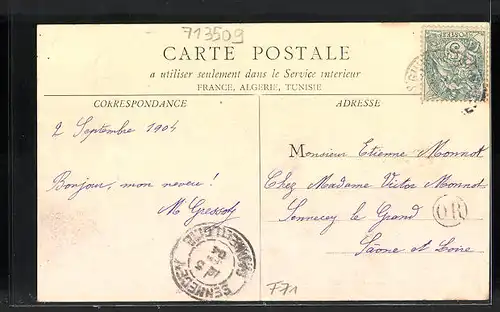 713509
CARTE POSTALE
a utiliser seulement dans le Service interieur
FRANCE, ALGERIE, TUNISIE
CORRESPONDANCE
ADRESSE
2 Septembre 1904
Bonjour, mon neveu !
Monsieur Etienne Monnot
Chez Madame Victor Monnot
Sennecey le Grand
Saône et Loire
OR
F71